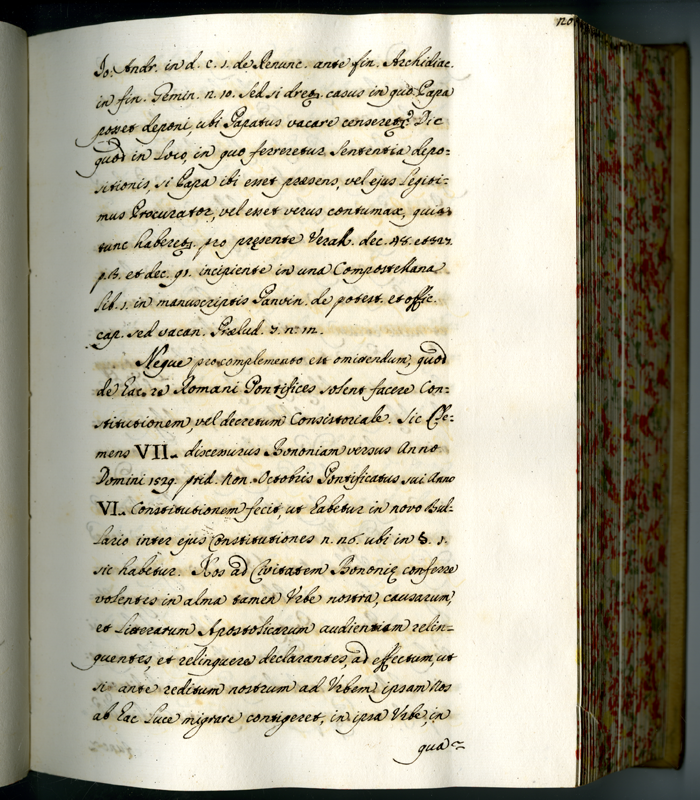 120
Jo. Andr. in d. c. 1. de Renunc. ante fin. Archidiac.
in fin. Gemin. n. 10. Sed si dretꝫ. casus in quo Papa
posset deponi, ubi Papatus vacare censeretꝫ? Dic
quod in Loco, in quo ferreretur Sententia depo=
sitionis, si Papa ibi esset præsens, vel ejus Legiti=
mus Procurator, vel esset verus contumax, quia
tunc haberetꝫ. pro pręsente Verall. dec. 48. et
p. 3. et dec. 91. incipiente in una Compostellana
Lib. 1. in manuscriptis Panvin. de potest. et offic.
cap. sed vacan. Prælud. 3. n. m.
Neque pro complemento est omittendum, quod
de hac re Romani Pontifices solent facere Con=
stitutionem, vel decretum Consistoriale. Sic Cle=
mens VII. discessurus Bononiam versus Anno
Domini 1529. prid. Non. Octobris Pontificatus sui Anno
VI. Constitutionem fecit, ut habetur in novo Bul=
lario inter ejus Constitutiones n. 26. ubi in §. 1.
sic habetur. Nos ad Civitatem Bononię conferre
volentes in alma tamen Vrbe nostra, causarum,
et Literarum Apostolicarum audientiam relin=
quentes, et relinquere declarantes, ad effectum, ut
si ante reditum nostrum ad Vrbem ipsam Nos
ab hac Luce migrare contigeret, in ipsa Vrbe, in
qua